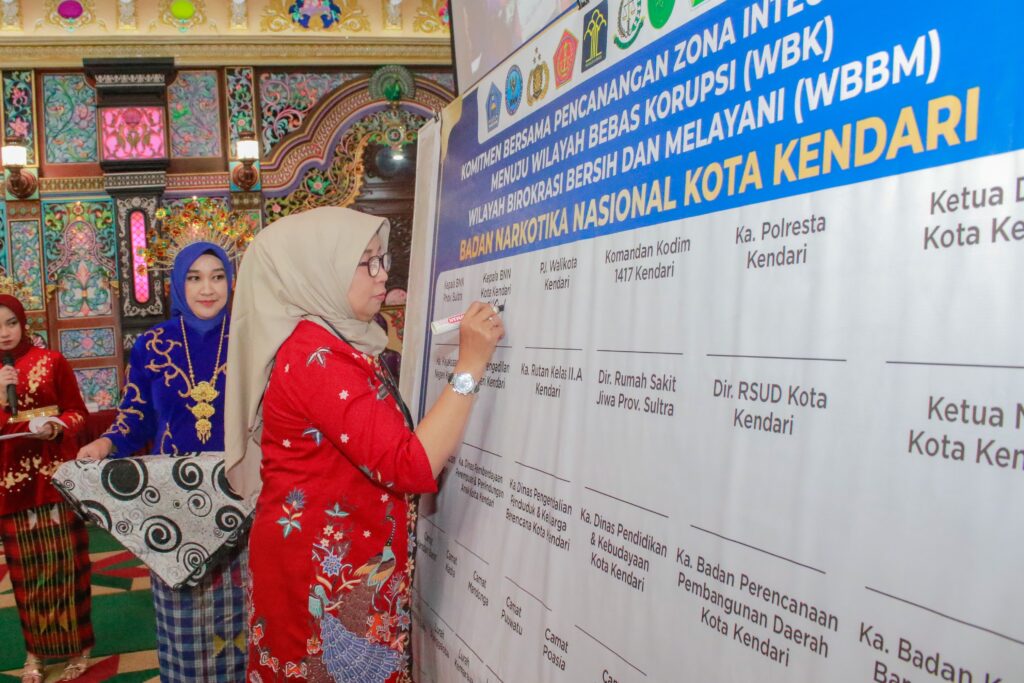 KOMITMEN BERSAMA PENCANANGAN ZONA
MENUJU WILAYAH BEBAS KORUPSI (WBK)
WILAYAH BIROKRASI BERSIH DAN MELAYANI (WBBM)
BADAN NARKOTIKA NASIONAL KOTA KENDARI
Kepala BNN
Prov. Sultra
Kepala BNN
Kota Kendari
PJ. Walikota
Kendari
Komandan Kodim
1417 Kendari
Ka. Polresta
Kendari
Ketua
Kota
Ka. Rutan Kelas II.A
Kendari
Dir. Rumah Sakit
Jiwa Prov. Sultra
Dir. RSUD Kota
Kendari
Ketua
Kota Ken
Ka. Dinas Pemberdayaan
Perempuan & Perlindungan
Anak Kota Kendari
Ka Dinas Pengentalian
Penduduk & Keluarga
Berencana Kota Kendari
Ka. Dinas Pendidikan
& Kebudayaan
Kota Kendari
Ka. Badan Perencanaan
Pembangunan Daerah
Kota Kendari
Ka. Badan
Camat
Camat
Mandonga
Camat
Puwatu
Camat
Poasia
Camat
Lurah